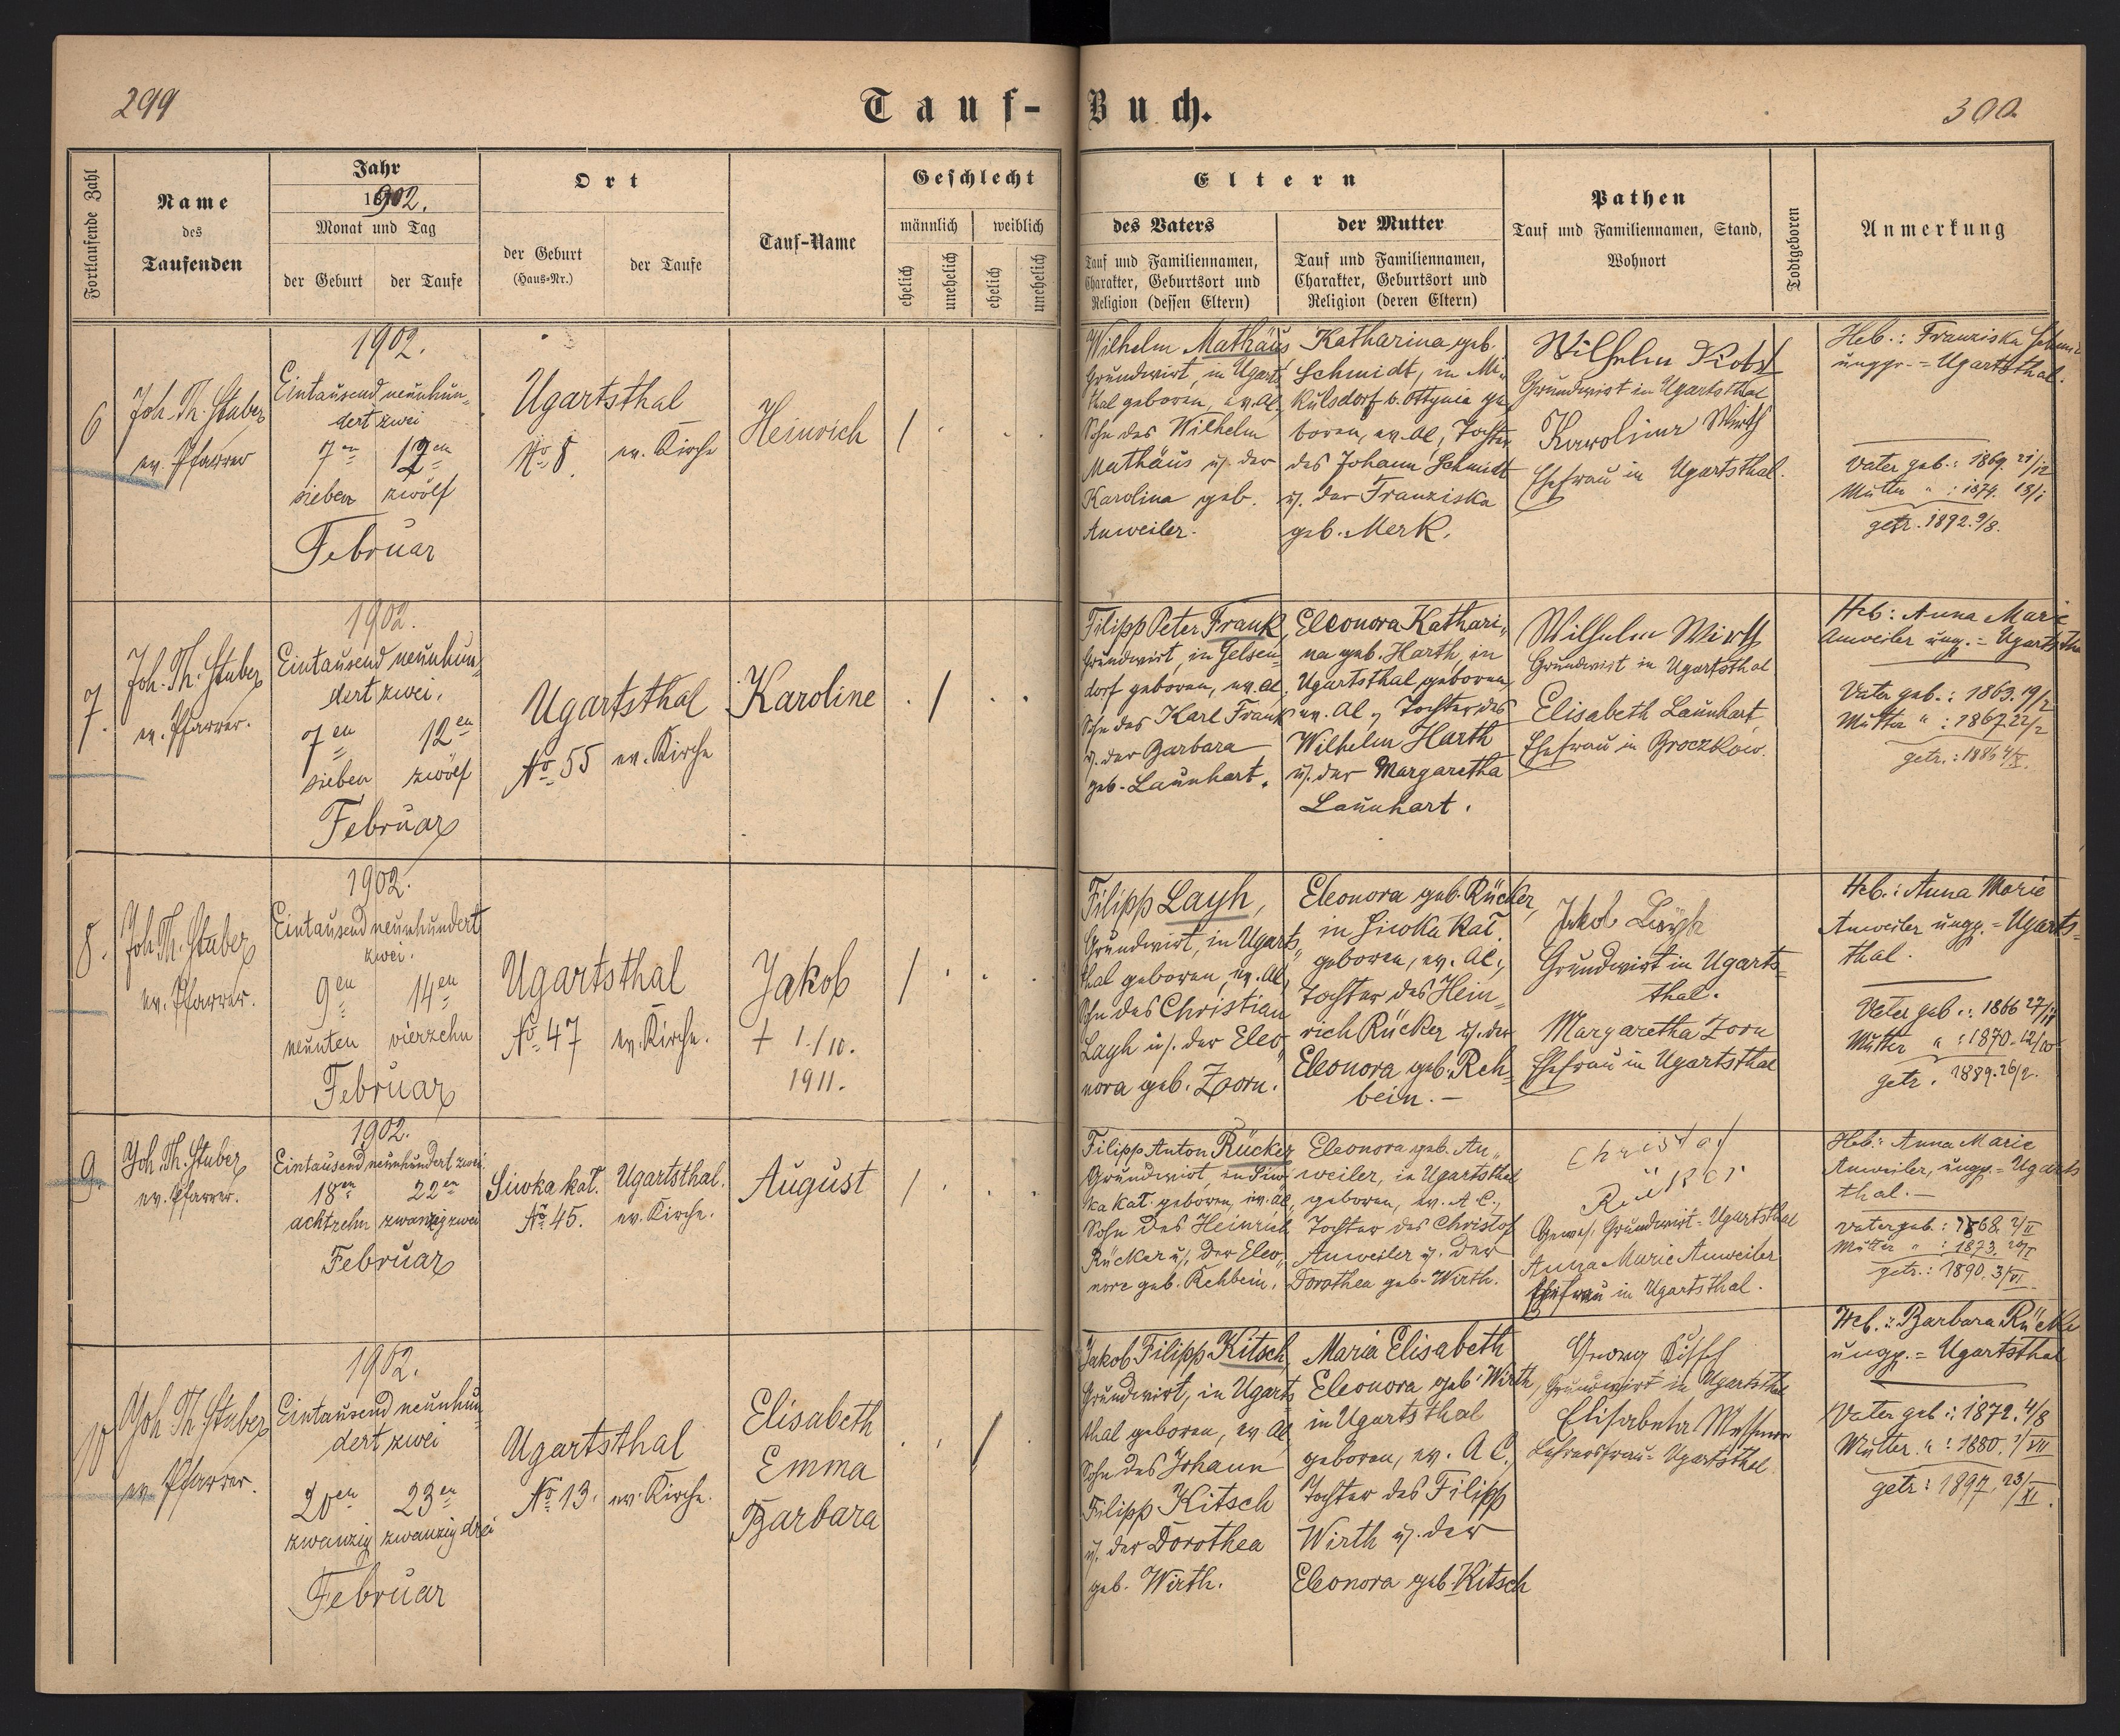 299
Tauf-
Buch.
300.
Fortlaufende Zahl
Name
des
Taufenden
Jahr
1902.
Monat und Tag
der Geburt
der Taufe
Ort
der Geburt
(Haus-Nr.)
der Taufe
Tauf-Name
Geschlecht
männlich
weiblich
ehelich
unehelich
ehelich
unehelich
Eltern
des Vaters
Tauf und Familiennamen,
Charakter, Geburtsort und
Religion (dessen Eltern)
der Mutter
Tauf und Familiennamen,
Charakter, Geburtsort und
Religion (deren Eltern)
Pathen
Tauf und Familiennamen, Stand,
Wohnort
Todtgeboren
Anmerkung
6
Joh. Th. Stuber
ev. Pfarrer
1902.
Eintausend neunhun„
dert zwei
7en 12en
sieben zwölf
Februar
Ugartsthal
No 8
ev. Kirche
Heinrich
/
Wilhelm Mathäus
Grundwirt, in Ugarts„
thal geboren, ev. AC,
Sohn des Wilhelm
Mathäus u. der
Karolina geb.
Anweiler.
Katharina geb.
Schmidt, in Mi„
kulsdorf b. Ottynia ge„
boren, ev. AC, Tochter
des Johann Schmidt
u. der Franziska
geb. Merk.
Wilhelm
Grundwirt in Ugartsthal
Karolina Wirth
Ehefrau in Ugartsthal.
Heb.: Franziska
ungpr. = Ugartsthal.
Vater geb.: 1869. 21/12
Mutter " : 1874. 18/1
getr. 1892. 9/8.
7.
Joh. Th. Stuber
ev. Pfarrer.
1902.
Eintausend neunhun„
dert zwei.
7en 12en
sieben zwölf
Februar
Ugartsthal
No 55
ev. Kirche
Karoline
/
Filipp Peter Frank,
Grundwirt, in Gelsen„
dorf geboren, ev. AC,
Sohn des Karl Frank
u. der Barbara
geb. Launhart.
Eleonora Kathari„
na geb. Harth, in
Ugartsthal geboren,
ev. AC, Tochter des
Wilhelm Harth
u. der Margaretha
Launhart.
Wilhelm Wirth
Grundwirt in Ugartsthal
Elisabeth Launhart
Ehefrau in Broczkow.
Heb: Anna Marie
Anweiler ung. = Ugartsthal
Vater geb.: 1863. 19/2
Mutter " : 1867. 22/2
getr.: 1886 4/X.
8.
Joh. Th. Stuber
ev. Pfarrer.
1902.
Eintausend neunhundert
zwei.
9en 14en
neunten vierzehn
Februar
Ugartsthal
No 47
ev. Kirche.
Jakob
† 1./10.
1911.
/
Filipp Layh,
Grundwirt, in Ugarts„
thal geboren, ev. AC,
Sohn des Christian
Layh u. der Eleo„
nora geb. Zorn.
Eleonora geb. Rücker,
in Siwka Kat.
geboren, ev. AC,
Tochter des Hein„
rich Rücker u. der
Eleonora geb. Reh„
bein. —
Jakob Layh
Grundwirt in Ugarts-
thal.
Margaretha Zorn
Ehefrau in Ugartsthal
Heb.: Anna Marie
Anweiler ungp. = Ugarts-
thal.
Vater geb.: 1866 27/
Mutter " : 1870. 12/10
getr. 1889. 26/2.
9.
Joh. Th. Stuber
ev. Pfarrer.
1902.
Eintausend neunhundert zwei
18en 22en
achtzehn zwanzig zwei
Februar
Siwka kat.
No 45.
Ugartsthal.
ev. Kirche.
August
/
Filipp Anton Rücker
Grundwirt, in Siw„
ka Kat. geboren, ev. AC,
Sohn des Heinrich
Rücker u. der Eleo„
nore geb. Rehbein.
Eleonora geb. An„
weiler, in Ugartsthal
geboren, ev. AC,
Tochter des Christof
Anweiler u. der
Dorothea geb. Wirth.
Christof
Rücker
Gewes. Grundwirt = Ugartsthal
Anna Marie Anweiler
Ehefrau in Ugartsthal.
Heb.: Anna Marie
Anweiler, ungp. = Ugarts
thal. —
Vater geb.: 1868. 2/II
Mutter " : 1873. 20/I
getr.: 1890. 3/VI
10
Joh. Th. Stuber
ev. Pfarrer.
1902.
Eintausend neunhun„
dert zwei
20en 23en
zwanzig zwanzig drei
Februar
Ugartsthal
No 13.
ev. Kirche.
Elisabeth
Emma
Barbara
/
Jakob Filipp Kitsch,
Grundwirt, in Ugarts„
thal geboren, ev. AC,
Sohn des Johann
Filipp Kitsch
u. der Dorothea
geb. Wirth.
Maria Elisabeth
Eleonora geb. Wirth,
in Ugartsthal
geboren, ev. AC,
Tochter des Filipp
Wirth u. der
Eleonora geb. Kitsch
Georg
Grundwirt in Ugartsthal
Elisabeth
Lehrersfrau = Ugartsthal
Heb.: Barbara Rücker
ungp. = Ugartsthal
Vater geb.: 1872. 4/8
Mutter " : 1880. /VII
getr: 1897. 23/XI.